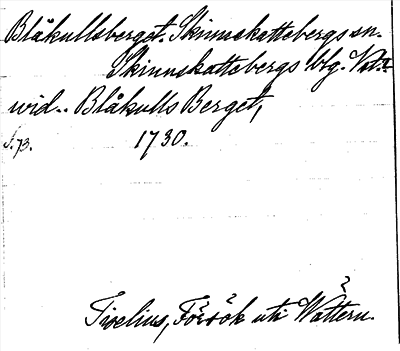 Blåkullsberget. Skinnskattebergs sn.
Skinnskattebergs bbg. Vstm.
wid.. Blåkulls Berget,
s. 73. 1730.
Tiselius, Försök uti Wättern.